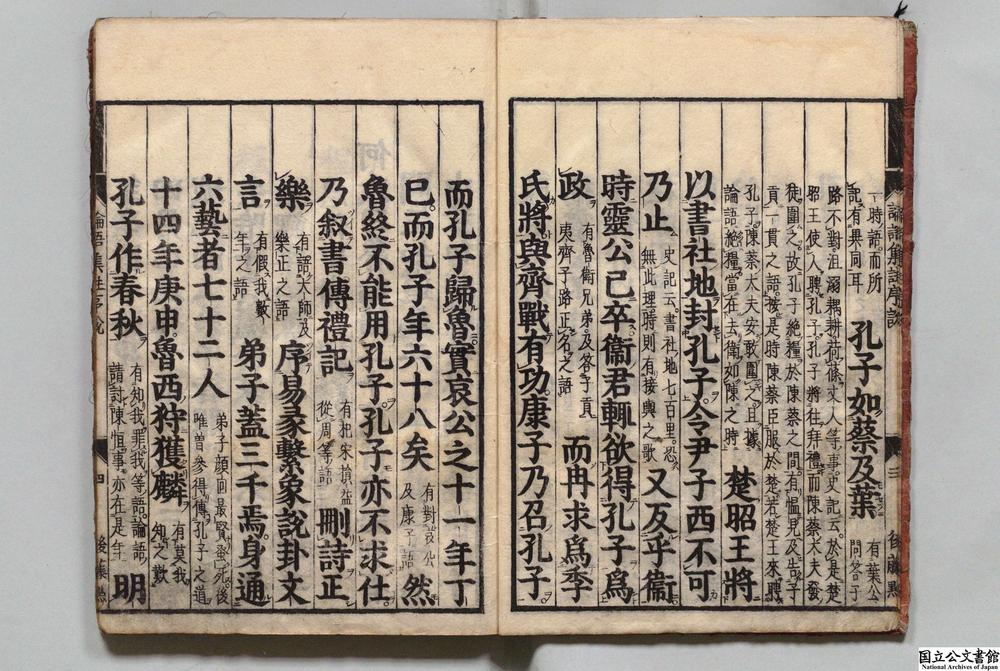 論語集註序說 三 後藤點
一時語而所記有異同耳 孔子如蔡及葉 有葉公問答子
路不對沮溺耦耕荷蓧丈人等事史記云於是楚
昭王使人聘孔子孔子將往拜禮而陳蔡大夫發
徒圍之故孔子絕糧於陳蔡之間有慍見及告子
貢一貫之語按是時陳蔡臣服於楚若楚王來聘
孔子陳蔡大夫安敢圍之且據論語絕糧當在去衛如陳之時 楚昭王將
以書社地封孔子令尹子西不可
乃止 史記云書社地七百里恐無此理時則有接輿之歌 又反乎衛
時靈公已卒衛君輒欲得孔子爲
政 有魯衛兄弟及答子貢夷齊子路正名之語 而冉求爲季
氏將與齊戰有功康子乃召孔子
而孔子歸魯實哀公之十一年丁
巳而孔子年六十八矣 有對哀公及康子語 然
魯終不能用孔子孔子亦不求仕
乃叙書傳禮記 有杞宋損益從周等語 刪詩正
樂 有語太師及樂正之語 序易彖繫象說卦文
言 有假我數年之語 弟子蓋三千焉身通
六藝者七十二人 弟子顏回最賢蚤死後唯曾參得傳孔子之道
十四年庚申魯西狩獲麟 有莫我知之歎
孔子作春秋 有知我罪我等語論語請討陳恒事亦在是年 明
論語集註序說 四 後藤點
国立公文書館
National Archives of Japan